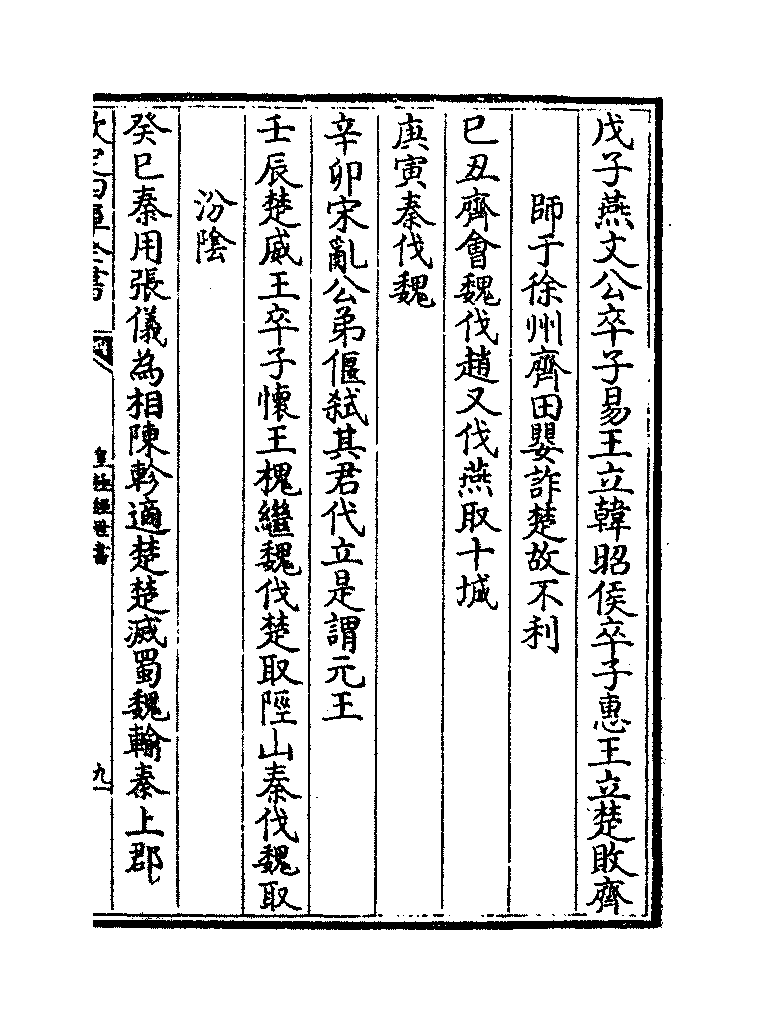 戊子燕文公卒子易王立韓昭侯卒子惠王立楚敗齊
師于徐州齊田嬰詐楚故不利
己丑齊會魏伐趙又伐燕取十城
庚寅秦伐魏
辛卯宋亂公弟偃弑其君代立是謂元王
壬辰楚威王卒子懷王槐繼魏伐楚取陘山秦伐魏取
汾陰
癸巳秦用張儀為相陳軫適楚楚滅蜀魏輸秦上郡
欽定四庫全書
皇極經世書
九